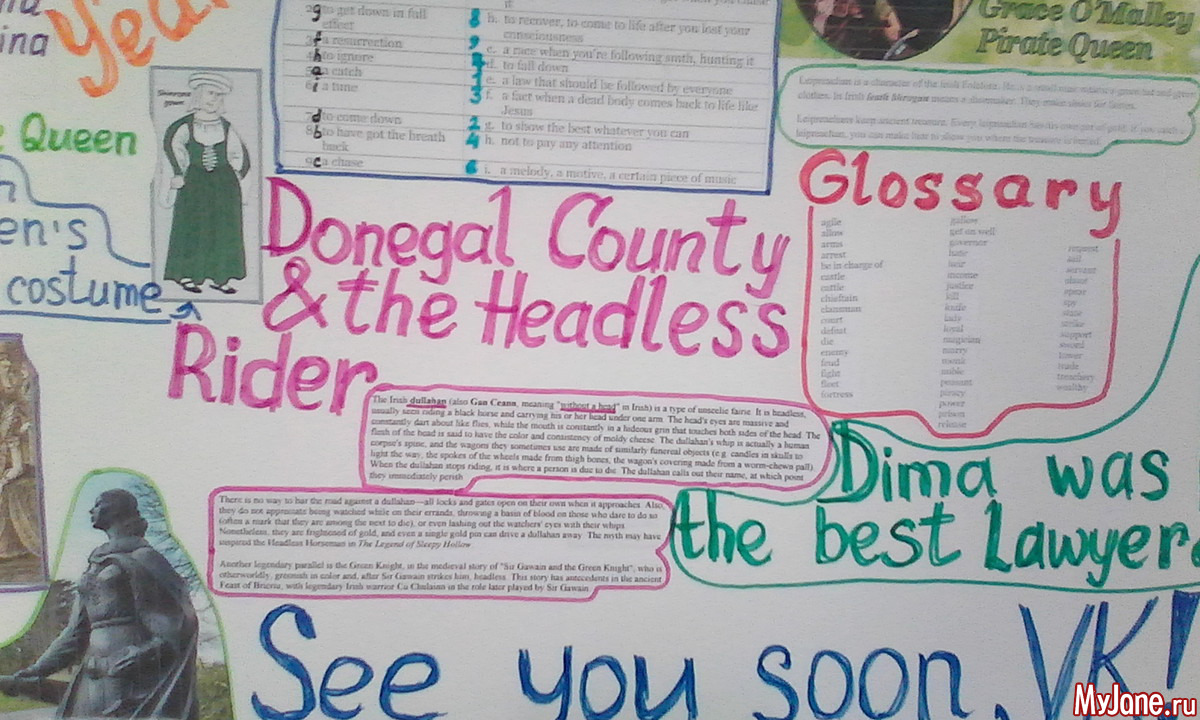 ina
Year
Queen
en's
costume
g to get down in full
effect
f a resurrection
h to ignore
a a catch
i a tune
d to come down
8b to have got the breath
back
9c a chase
8 h. to recover, to come to life after you lost your
consciousness
9 c. a race when you're following smth, hunting it
d. to fall down
e. a law that should be followed by everyone
3 f. a fact when a dead body comes back to life like
Jesus
g. to show the best whatever you can
4 h. not to pay any attention
6 i. a melody, a motive, a certain piece of music
Grace O'Malley
Pirate Queen
Leprechaun is a character of the Irish Folklore. He is a small man
clothes. In Irish means a shoemaker. They make shoes for fairies.
Leprechauns keep ancient treasure. Every leprechaun has his own pot of gold. If you catch a
leprechaun, you can make him to show you where the treasure is buried.
Donegal County
& the Headless
Rider
Glossary
agile
allow
arms
arrest
be in charge of
castle
cattle
chieftain
clansman
court
defeat
die
enemy
feud
fight
fleet
fortress
gallows
get on well
governor
hate
heir
income
justice
kill
knife
lady
loyal
magician
marry
monk
noble
peasant
piracy
power
prison
release
request
sail
servant
spy
state
strike
support
sword
tower
trade
treachery
wealthy
The Irish dullahan (also Gan Ceann, meaning "without a head" in Irish) is a type of unseelie faerie. It is headless,
usually seen riding a black horse and carrying his or her head under one arm. The head's eyes are massive and
constantly dart about like flies, while the mouth is constantly in a hideous grin that touches both sides of the head. The
flesh of the head is said to have the color and consistency of moldy cheese. The dullahan's whip is actually a human
corpse's spine, and the wagons they sometimes use are made of similarly funereal objects (e.g. candles in skulls to
light the way, the spokes of the wheels made from thigh bones, the wagon's covering made from a worm-chewn pall).
When the dullahan stops riding, it is where a person is due to die. The dullahan calls out their name, at which point
they immediately perish
There is no way to bar the road against a dullahan—all locks and gates open on their own when it approaches. Also,
they do not appreciate being watched while on their errands, throwing a basin of blood on those who dare to do so
(often a mark that they are among the next to die), or even lashing out the watchers' eyes with their whips.
Nonetheless, they are frightened of gold, and even a single gold pin can drive a dullahan away. The myth may have
inspired the Headless Horseman in The Legend of Sleepy Hollow
Another legendary parallel is the Green Knight, in the medieval story of "Sir Gawain and the Green Knight", who is
otherworldly, greenish in color and, after Sir Gawain strikes him, headless. This story has antecedents in the ancient
Feast of Bricriu, with legendary Irish warrior Cu Chulainn in the role later played by Sir Gawain
Dima was
the best Lawyer
See you soon, VK!
MyJane.ru